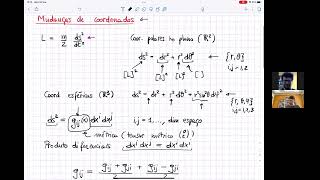 Mudanças de coordenadas
L = m/2 ds²/dt²
Coor. polares no plano (ℝ²)
ds² = dr² + r² dθ²
{r, θ}
i,j = 1,2
[L]² [L]² [L]²
Coord esféricas (ℝ³)
ds² = dr² + r² dθ² + r² sin²θ dφ²
{r, θ, φ}
i,j = 1,2,3
ds² = gij(x) dxⁱ dxʲ
i,j = 1, ..., dim espaço
métrica (tensor métrico (g))
Produto diferenciais dxⁱ dxʲ = dxʲ dxⁱ
gij = gij + gji + gij - gji